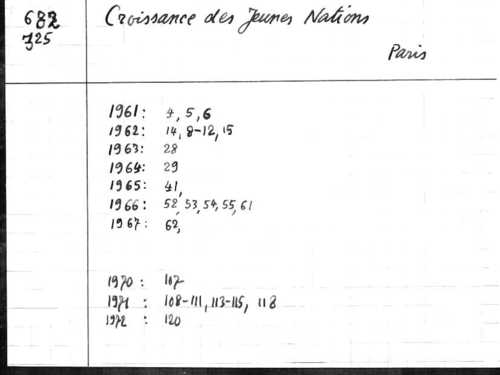 682 Croissance des Jeunes Nations
J25
Paris
1961: 4, 5, 6
1962: 14, 8-12, 15
1963: 28
1964: 29
1965: 41,
1966: 52, 53, 54, 55, 61
1967: 62,
1970: 107
1971: 108-111, 113-115, 118
1972: 120